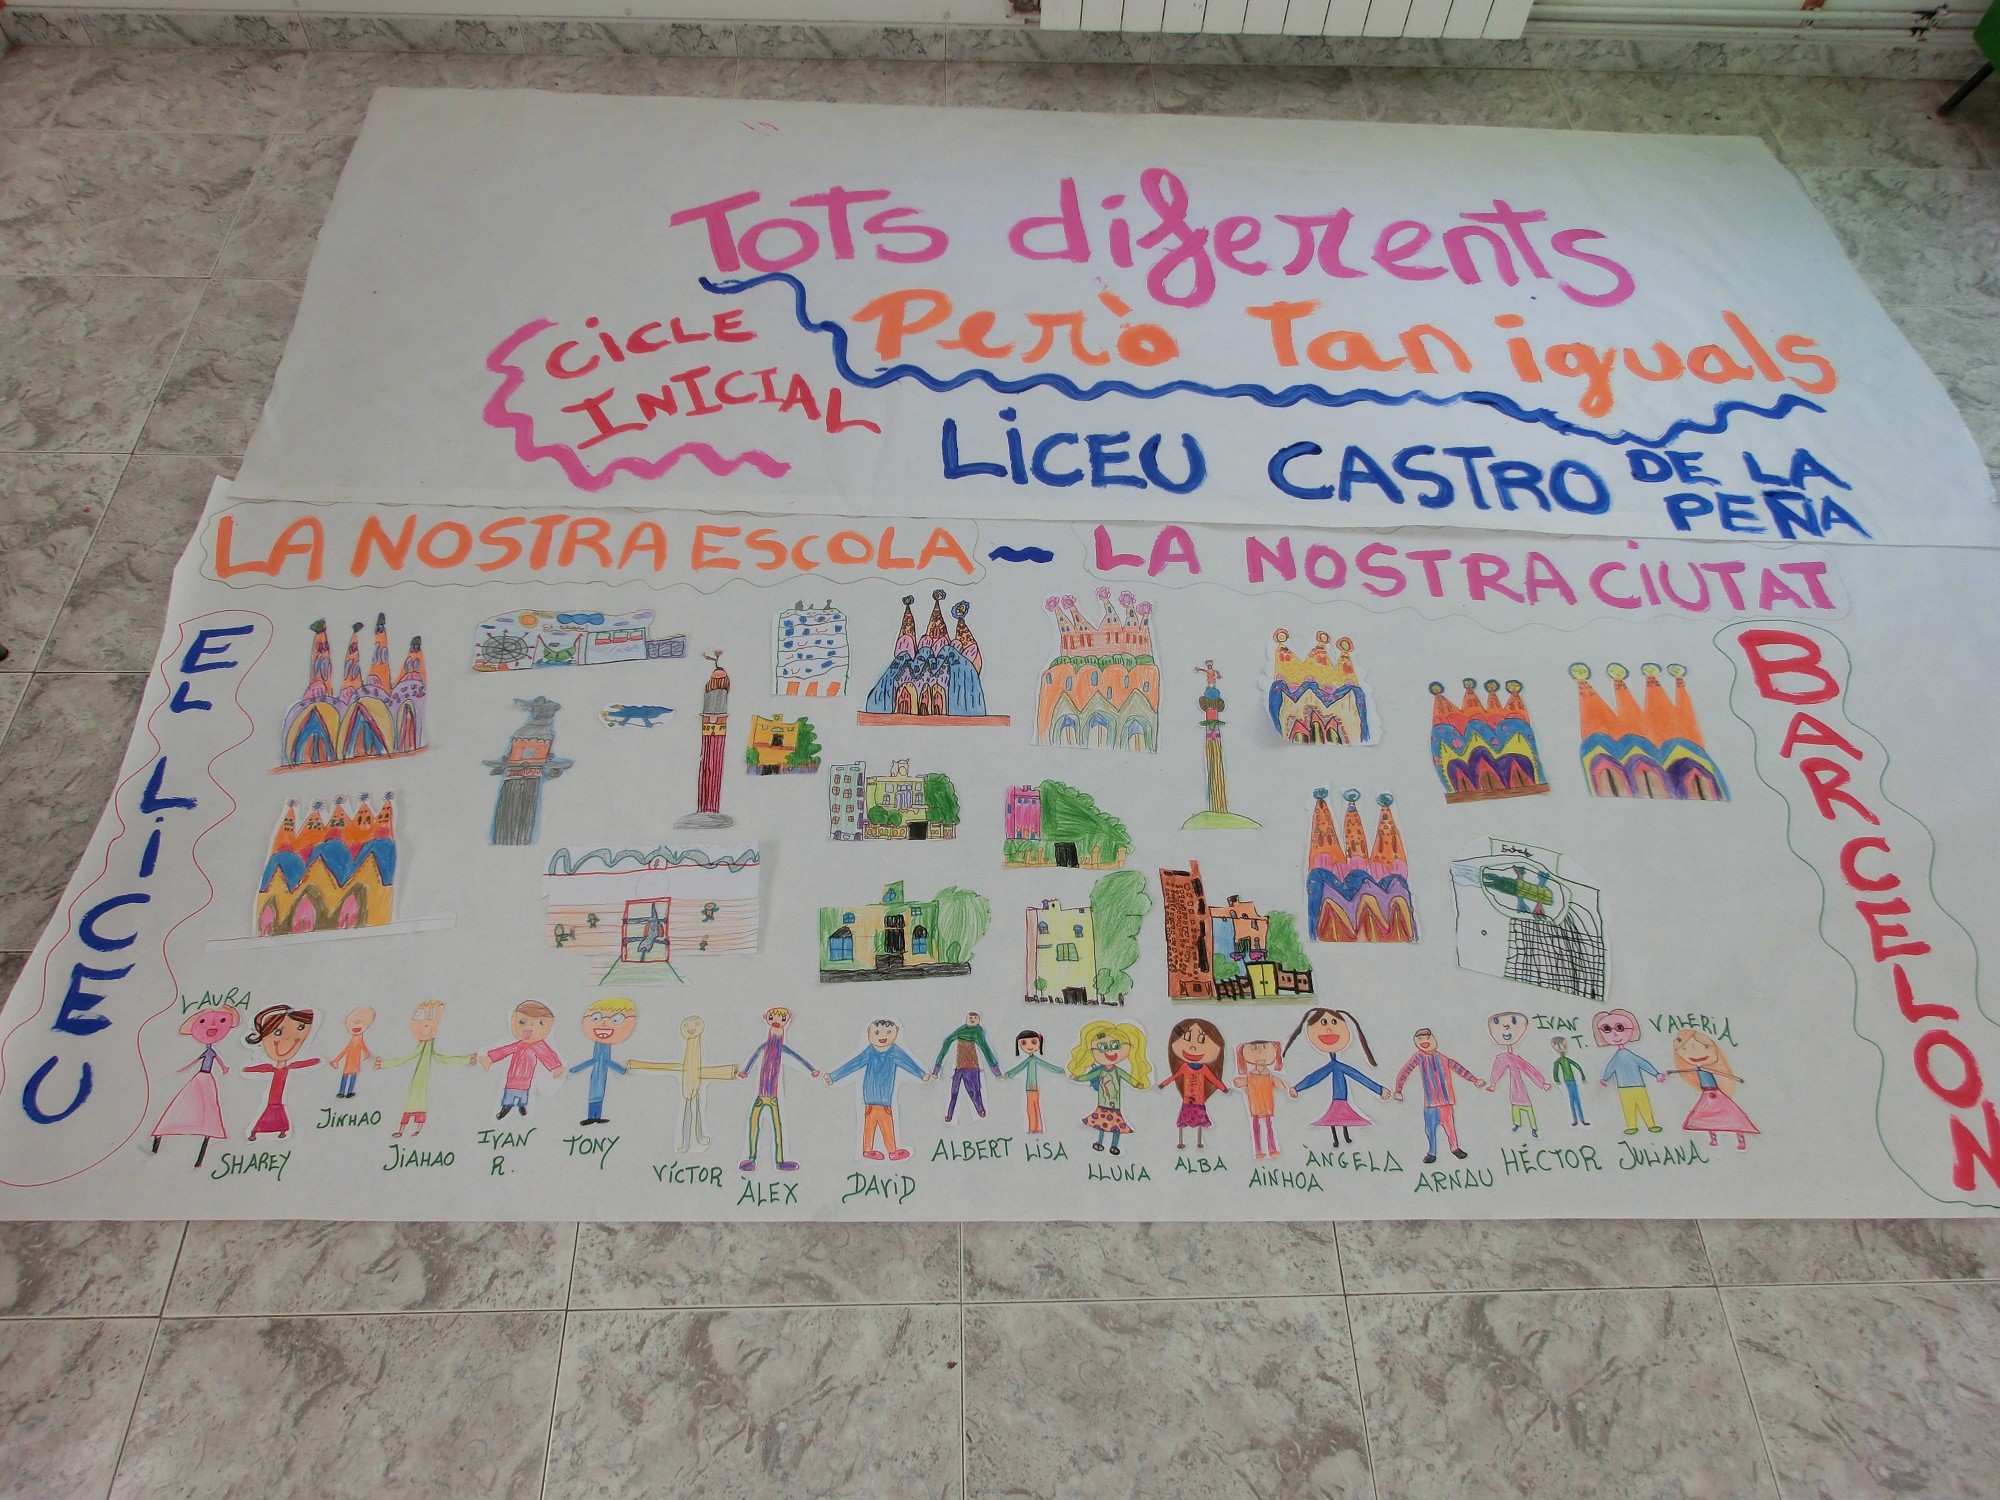 Tots diferents
Però Tan iguals
CICLE
INICIAL
LICEU CASTRO DE LA PEÑA
LA NOSTRA ESCOLA ~ LA NOSTRA CIUTAT
EL LICEU
BARCELON
LAURA
SHAREY
JINHAO
JIAHAO
IVAN R.
TONY
VÍCTOR
ÀLEX
DAVID
ALBERT
LISA
LLUNA
ALBA
AINHOA
ÀNGELA
ARNAU
HÉCTOR
IVAN T.
JULIANA
VALERIA